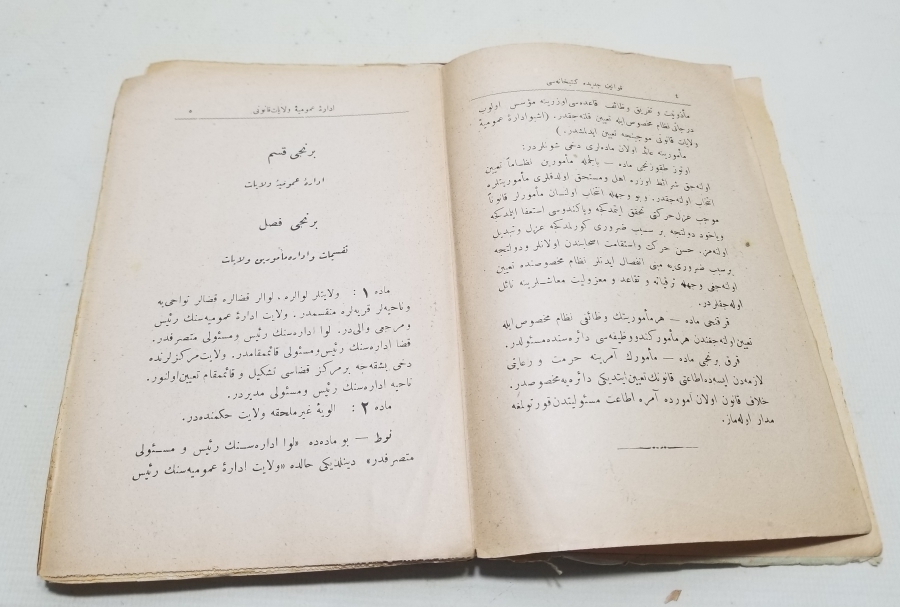 ٤
قوانین جدیده کتبخانه‌سی
مأذونیت و تفریق وظائف قاعده‌سی اوزرینه مؤسس اولوب
درجاتی نظام مخصوص ایله تعیین قلنه‌جقدر. (اشبو ادارهٔ عمومیهٔ
ولایات قانونی موجبنجه تعیین ایدلمشدر.)
مأمورینه عائد اولان ماده‌لری دخی شونلردر:
اوتوز طقوزنجی ماده — بالجمله مأمورین نظاماً تعیین
اوله‌جق شرائط اوزره اهل و مستحق اولدقلری مأموریتلره
انتخاب اوله‌جقدر. و بو وجهله انتخاب اولنان مأمورلر قانوناً
موجب عزل حرکتی تحقق ایتمدکجه و یا کندوسی استعفا ایتمدکجه
و یاخود دولتجه بر سبب ضروری کورلمدکجه عزل و تبدیل
اوله‌مز. حسن حرکت و استقامت اصحابندن اولانلر و دولتجه
بر سبب ضروری‌یه مبنی انفصال ایدنلر نظام مخصوصنده تعیین
اوله‌جغی وجهله ترقیاته و تقاعد و معزولیت معاشلرینه نائل
اوله‌جقلردر.
قرقنجی ماده — هر مأموریتك وظائفی نظام مخصوص ایله
تعیین اوله‌جغندن هر مأمور کندو وظیفه‌سی دائره‌سنده مسئولدر.
قرق برنجی ماده — مأمورك آمرینه حرمت و رعایتی
لازمه‌دن ایسه‌ده اطاعتی قانونك تعیین ایتدیکی دائره‌یه مخصوصدر.
خلاف قانون اولان امورده آمره اطاعت مسئولیتدن قورتولمغه
مدار اوله‌ماز.
ادارهٔ عمومیهٔ ولایات قانونی
٥
برنجی قسم
ادارهٔ عمومیهٔ ولایات
برنجی فصل
تقسیمات و ادارهٔ مأمورین ولایات
ماده ١ : ولایتلر لوالره. لوالر قضالره قضالر نواحی‌یه
و ناحیه‌لر قریه‌لره منقسمدر. ولایت ادارهٔ عمومیه‌سنك رئیس
و مرجعی والی‌در. لوا اداره‌سنك رئیس و مسئولی متصرفدر.
قضا اداره‌سنك رئیس و مسئولی قائممقامدر. ولایت مرکزلرنده
دخی بشقه‌جه بر مرکز قضاسی تشکیل و قائممقام تعیین اولنور.
ناحیه اداره‌سنك رئیس و مسئولی مدیردر.
ماده ٢ : الویهٔ غیر ملحقه ولایت حکمنده‌در.
نوط — بو ماده‌ده «لوا اداره‌سنك رئیس و مسئولی
متصرفدر» دینلدیکی حالده «ولایت ادارهٔ عمومیه‌سنك رئیس